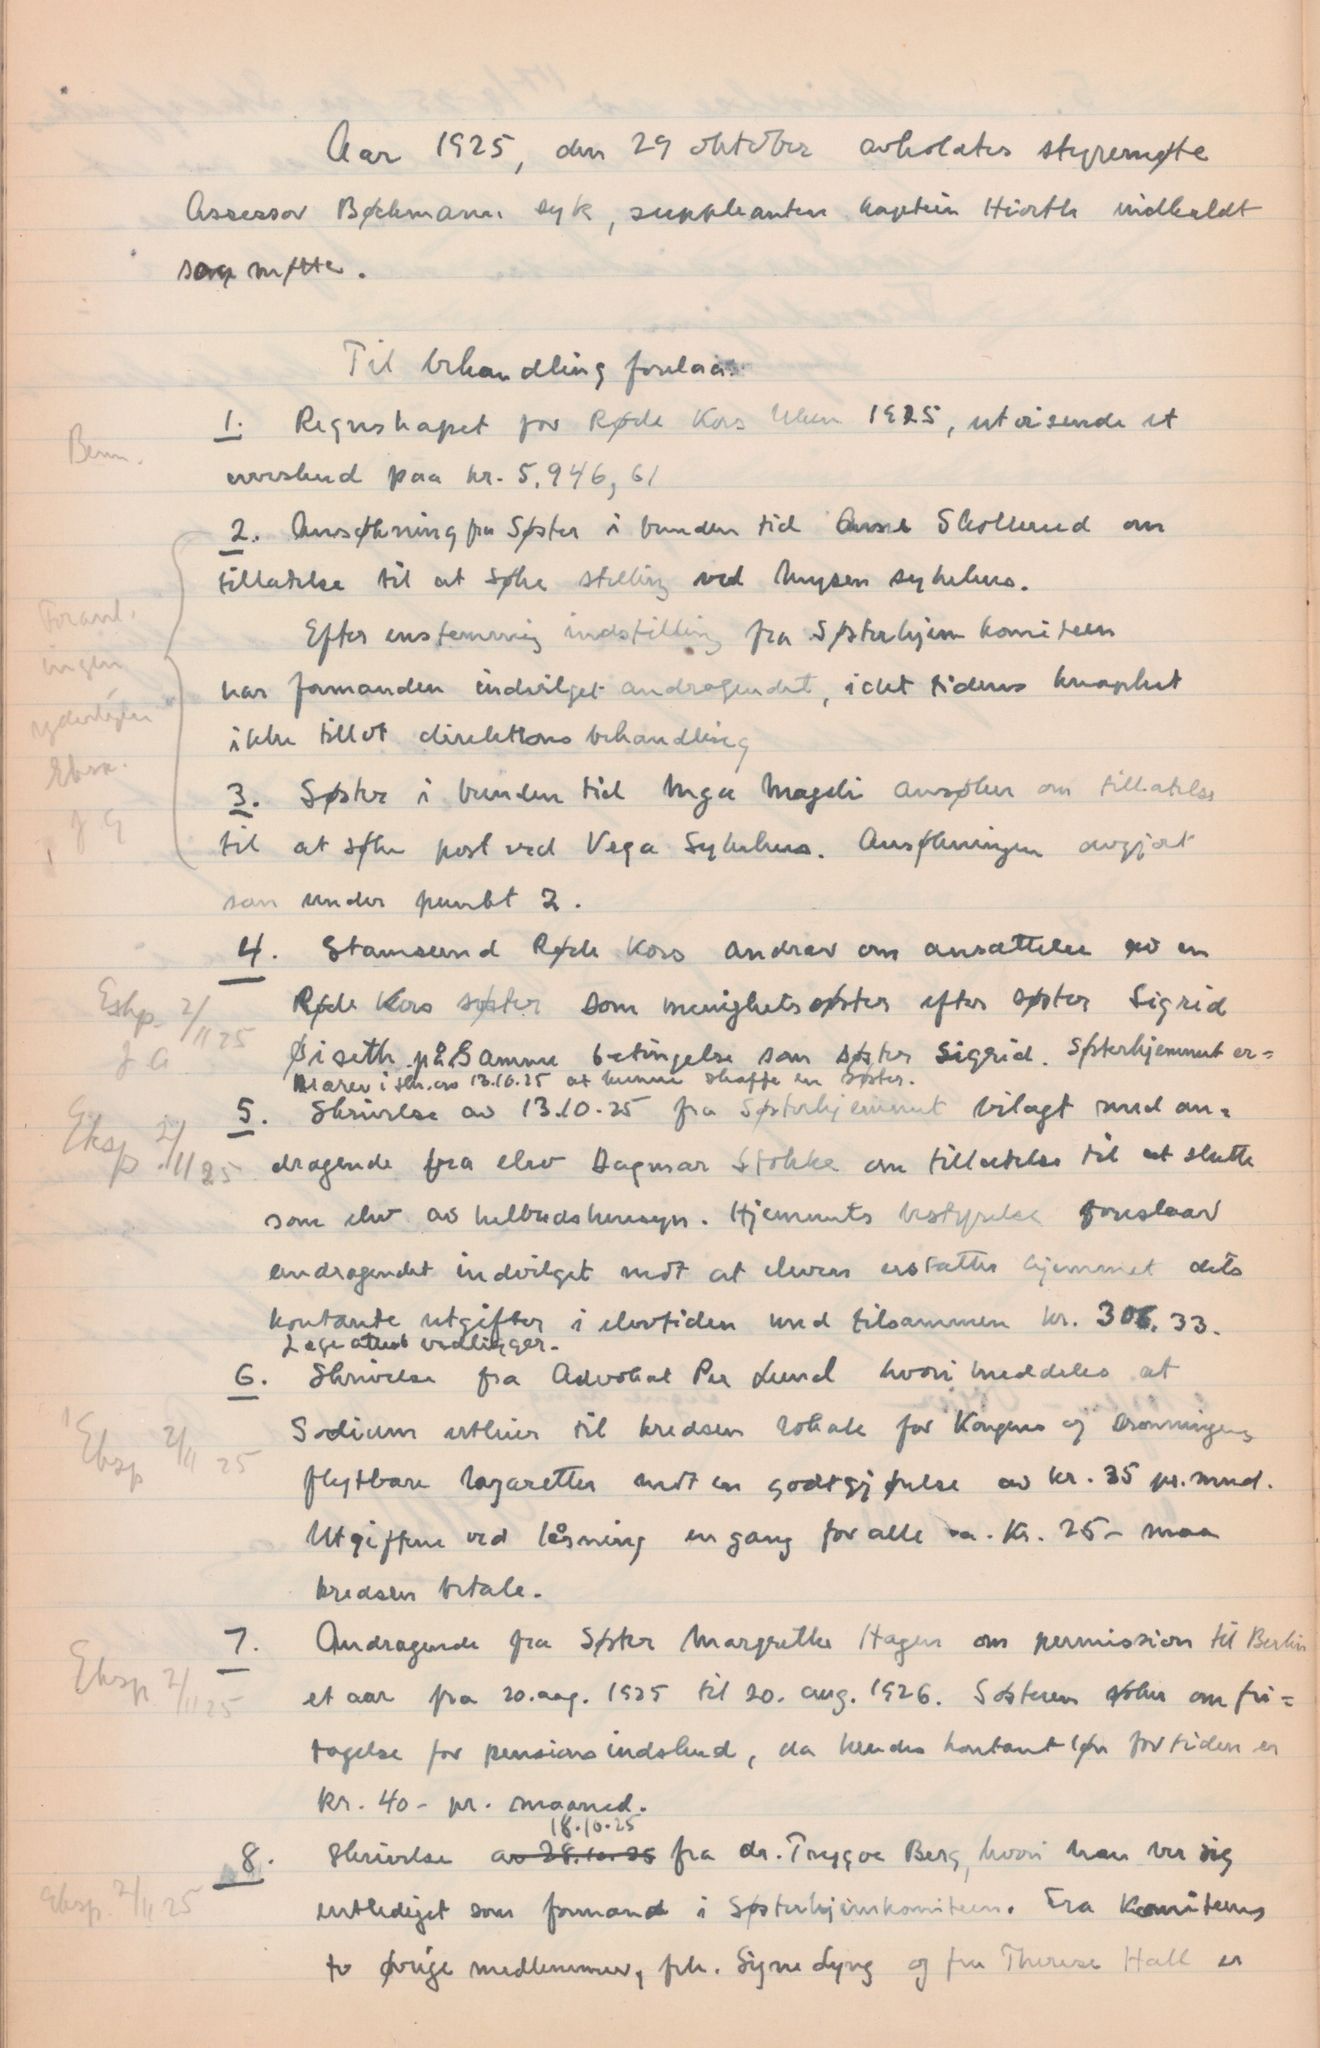 Aar 1925, den 29 oktober avholdtes styremøte
Assessor Bøckmann syk, suppleanten kaptein Hiorth indkaldt
og møtte.
Til behandling forelaa:
1. Regnskapet for Røde Kors Uken 1925, utvisende et
Bem.
overskud paa kr. 5.946,61
2. Ansøkning fra Søster i bunden tid Anna Skollerud om
tilladelse til at søke stilling ved Mysen sykehus.
Efter enstemmig indstilling fra Søsterhjem komiteen
har formanden indvilget andragendet, idet tidens knaphet
ikke tillot direktions behandling
Forand.
ingen
yderligere
Eksp.
J G
3. Søster i bunden tid Inga Mageli ansøker om tillatelse
til at søke post ved Vega Sykehus. Ansøkningen avgjort
som under punkt 2.
4. Stamsund Røde Kors andrar om ansættelse av en
Røde Kors søster som menighetssøster efter søster Sigrid
Eksp. 2/11 25
J G
Øiseth på samme betingelse som søster Sigrid. Søsterhjemmet er-
klærer i skr. av 13.10.25 at kunne skaffe en søster.
5. Skrivelse av 13.10.25 fra Søsterhjemmet bilagt med an-
Eksp 2/11 25
dragende fra elev Dagmar Stokke om tilladelse til at slutte
som elev av helbredshensyn. Hjemmets bestyrelse foreslaar
andragendet indvilget mot at eleven erstatter hjemmet dets
kontante utgifter i elevtiden med tilsammen kr. 306.33.
Læge attest vedligger.
6. Skrivelse fra Advokat Per Lund hvori meddeles at
Sodium utleier til kredsen lokale for Kongens og Dronningens
Eksp 2/11 25
flytbare lazaretter mot en godtgjørelse av kr. 35 pr. mnd.
Utgiftene ved låsning en gang for alle ca. Kr. 25- maa
kredsen betale.
7. Andragende fra Søster Margrethe Hagen om permission til Berlin
Eksp. 2/11 25
et aar fra 20. aug. 1925 til 20. aug. 1926. Søsteren søker om fri-
tagelse for pensions indskud, da hendes kontant løn for tiden er
kr. 40- pr. maaned.
18.10.25
8. Skrivelse av 28.10.25 fra dr. Trygve Berg, hvori han ber sig
Eksp. 2/11 25
entlediget som formand i Søsterhjemskomiteen. Fra Komiteens
to øvrige medlemmer, frk. Signe Lyng og fru Therese Hall er